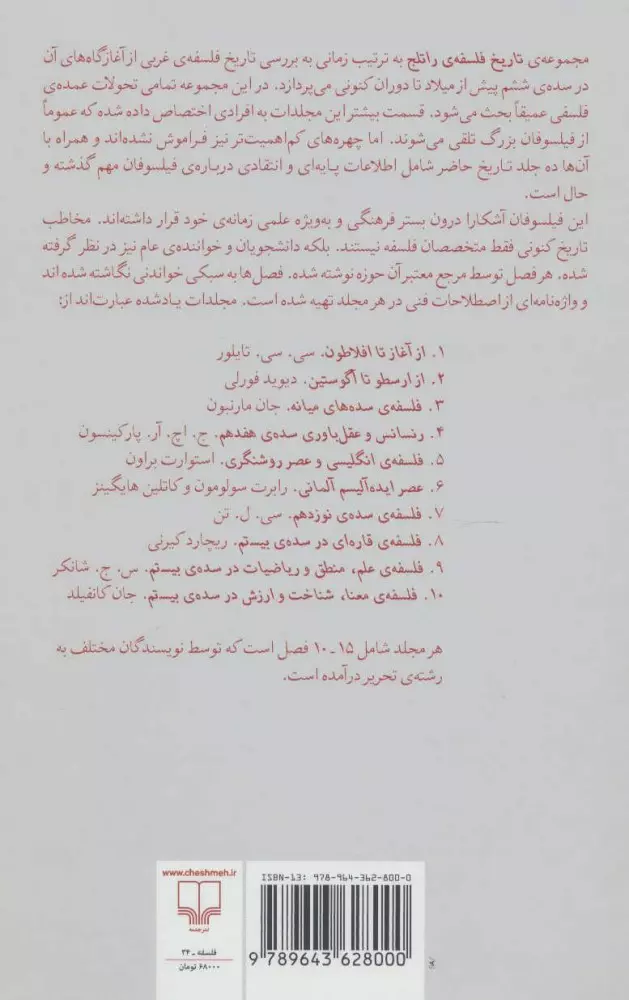 مجموعه‌ی تاریخ فلسفه‌ی راتلج به ترتیب زمانی به بررسی تاریخ فلسفه‌ی غربی از آغازگاه‌های آن
در سده‌ی ششم پیش از میلاد تا دوران کنونی می‌پردازد. در این مجموعه تمامی تحولات عمده‌ی
فلسفی عمیقاً بحث می‌شود. قسمت بیشتر این مجلدات به افرادی اختصاص داده شده که عموماً
از فیلسوفان بزرگ تلقی می‌شوند. اما چهره‌های کم‌اهمیت‌تر نیز فراموش نشده‌اند و همراه با
آن‌ها ده جلد تاریخ حاضر شامل اطلاعات پایه‌ای و انتقادی درباره‌ی فیلسوفان مهم گذشته و
حال است.
این فیلسوفان آشکارا درون بستر فرهنگی و به‌ویژه علمی زمانه‌ی خود قرار داشته‌اند. مخاطب
تاریخ کنونی فقط متخصصان فلسفه نیستند. بلکه دانشجویان و خواننده‌ی عام نیز در نظر گرفته
شده. هر فصل توسط مرجع معتبر آن حوزه نوشته شده. فصل‌ها به سبکی خواندنی نگاشته شده اند
و واژه‌نامه‌ای از اصطلاحات فنی در هر مجلد تهیه شده است. مجلدات یادشده عبارت‌اند از:
۱. از آغاز تا افلاطون. سی. سی. تایلور
۲. از ارسطو تا آگوستین. دیوید فورلی
۳. فلسفه‌ی سده‌های میانه. جان مارنبون
۴. رنسانس و عقل‌باوری سده‌ی هفدهم. ج. اچ. آر. پارکینسون
۵. فلسفه‌ی انگلیسی و عصر روشنگری. استوارت براون
۶. عصر ایده‌آلیسم آلمانی. رابرت سولومون و کاتلین هایگینز
۷. فلسفه‌ی سده‌ی نوزدهم. سی. ل. تن
۸. فلسفه‌ی قاره‌ای در سده‌ی بیستم. ریچارد کیرنی
۹. فلسفه‌ی علم، منطق و ریاضیات در سده‌ی بیستم. س. ج. شانکر
۱۰. فلسفه‌ی معنا، شناخت و ارزش در سده‌ی بیستم. جان کانفیلد
هر مجلد شامل ۱۵ ـ ۱۰ فصل است که توسط نویسندگان مختلف به
رشته‌ی تحریر درآمده است.
www.cheshmeh.ir
نشرچشمه
فلسفه ـ ۳۴
۶۸۰۰۰ تومان
ISBN-13: 978-964-362-800-0
9 789643 628000